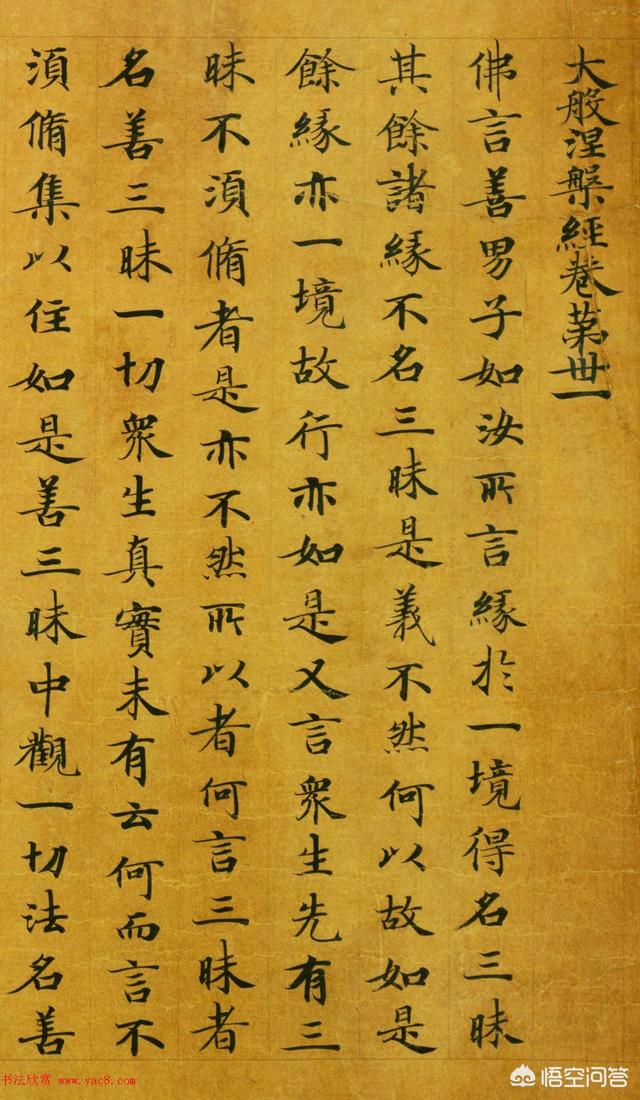 大般涅槃經卷第丗一
佛言善男子如汝所言緣於一境得名三昧
其餘諸緣不名三昧是義不然何以故如是
餘緣亦一境故行亦如是又言衆生先有三
昧不須脩者是亦不然所以者何言三昧者
名善三昧一切衆生真實未有云何而言不
須脩集以住如是善三昧中觀一切法名善
书法欣赏 www.yac8.com
悟空问答